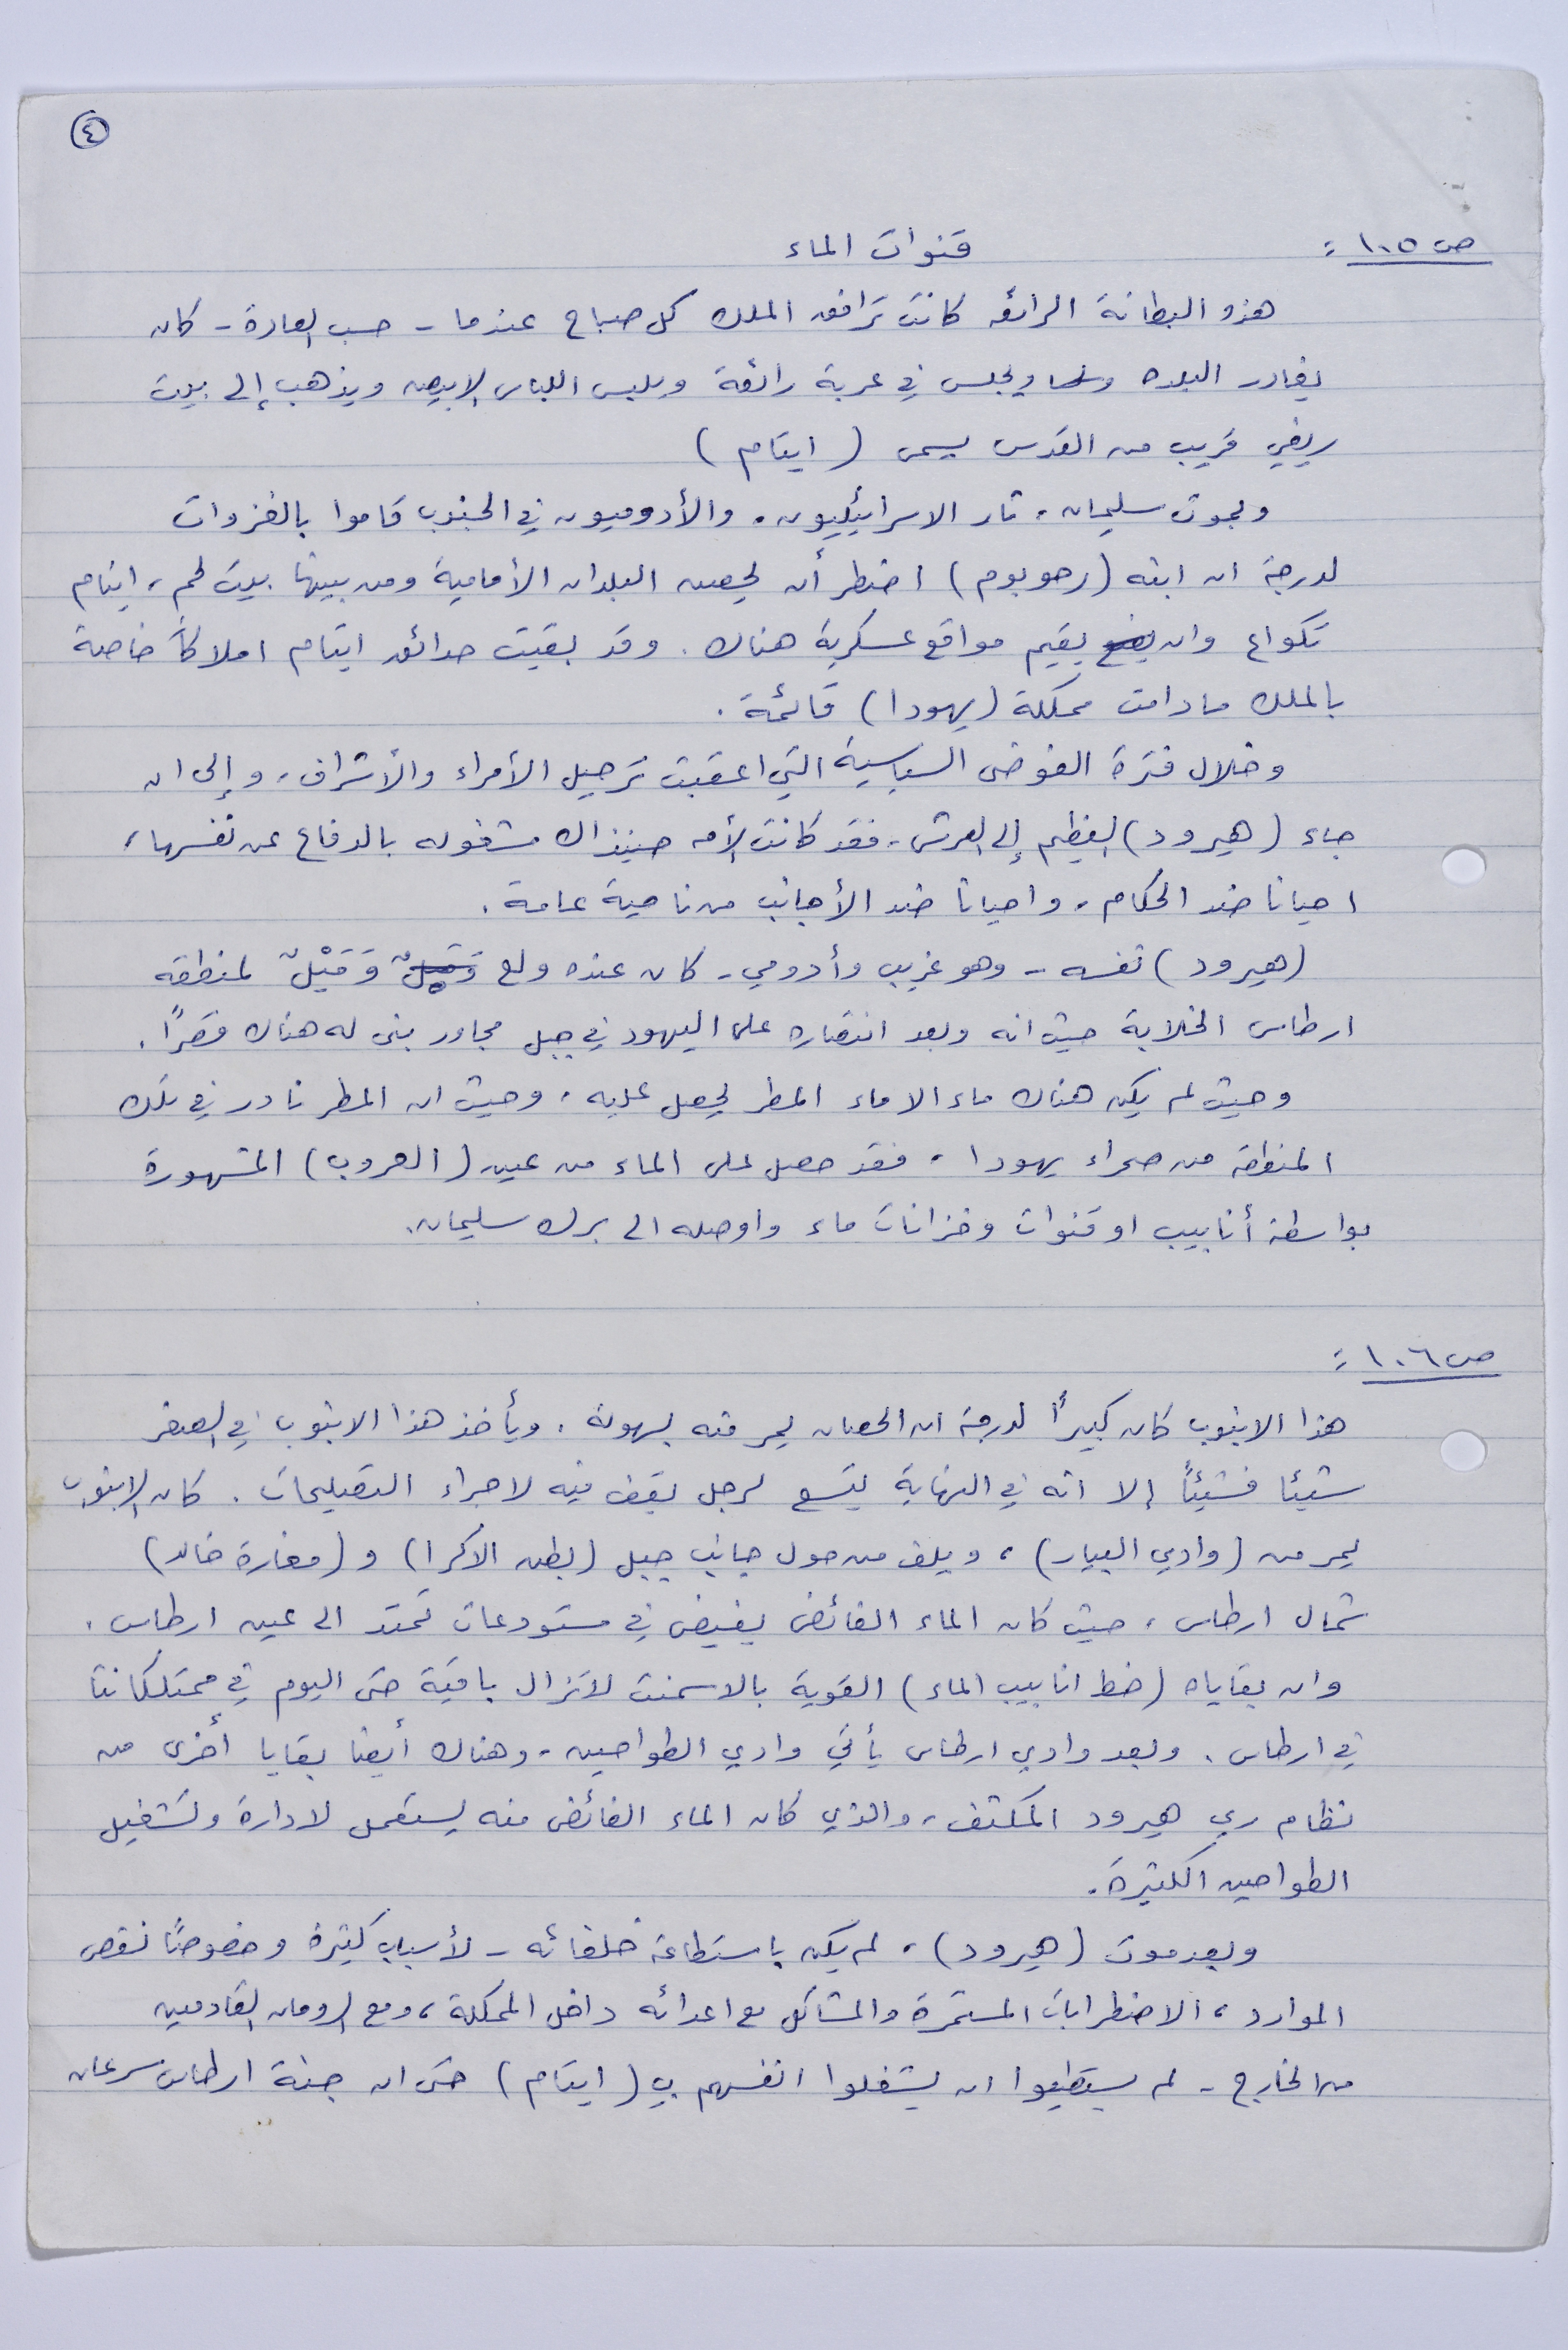 ٤
ص ١٠٥ :
قنوات الماء
هذه البطانة الرائعه كانت ترافق الملك كل صباح عندما - حسب العادة - كان
يغادر البلده ويجلس في عربة رائعة ويلبس اللباس الابيض ويذهب إلى بيت
ريفي قريب من القدس يسمى ( ايتام )
وبموت سليمان ، ثار الاسرائيليون ، والأدوميون في الجنوب قاموا بالغزوات
لدرجة ان ابنه (رحوبوم) اضطر أن يحصن البلدان الأمامية ومن بينها بيت لحم ، ايتام
تكواع وان يقيم مواقع عسكرية هناك . وقد بقيت حدائق ايتام املاكاً خاصة
بالملك ما دامت مملكة (يهودا) قائمة .
وخلال فترة الفوضى السياسية التي اعقبت ترحيل الأمراء والأشراف ، وإلى ان
جاء (هيرود) العظيم إلى العرش ، فقد كانت الأمه حينذاك مشغوله بالدفاع عن نفسها ،
احيانا ضد الحكام ، واحيانا ضد الأجانب من ناحية عامة .
(هيرود) نفسه - وهو غريب وأدومي - كان عنده ولع وَمَيْلٌ لمنطقه
ارطاس الخلابة حيث انه وبعد انتصاره على اليهود في جبل مجاور بنى له هناك قصرًا .
وحيث لم يكن هناك ماء الا ماء المطر ليحصل عليه ، وحيث ان المطر نادر في تلك
المنطقة من صحراء يهودا ، فقد حصل على الماء من عين (العروب) المشهورة
بواسطة أنابيب او قنوات وخزانات ماء واوصله الى برك سليمان .
ص ١٠٦ :
هذا الانبوب كان كبيرًا لدرجة ان الحصان يمر منه بسهولة . ويأخذ هذا الانبوب في الصغر
شيئا فشيئاً إلا انه في النهاية يتسع لرجل يقف فيه لاجراء التصليحات . كان الانبوب
يمر من (وادي البيار) ، ويلف من حول جانب جبل (بطن الاكرا) و (مغارة خالد)
شمال ارطاس ، حيث كان الماء الفائض يفيض في مستودعات تمتد الى عين ارطاس .
وان بقاياه (خط انابيب الماء) القوية بالاسمنت لاتزال باقية حتى اليوم في ممتلكاتنا
في ارطاس . وبعد وادي ارطاس يأتي وادي الطواحين ، وهناك أيضا بقايا أخرى من
نظام ري هيرود المكثف ، والذي كان الماء الفائض منه يستعمل لادارة وتشغيل
الطواحين الكثيرة .
وبعد موت (هيرود) ، لم يكن باستطاعة خلفائه - لأسباب كثيرة وخصوصًا نقص
الموارد ، الاضطرابات المستمرة والمشاكل مع اعدائه داخل المملكة ، ومع الرومان القادمين
من الخارج - لم يستطيعوا ان يشغلوا انفسهم بـ (ايتام) حتى ان جنة ارطاس سرعان